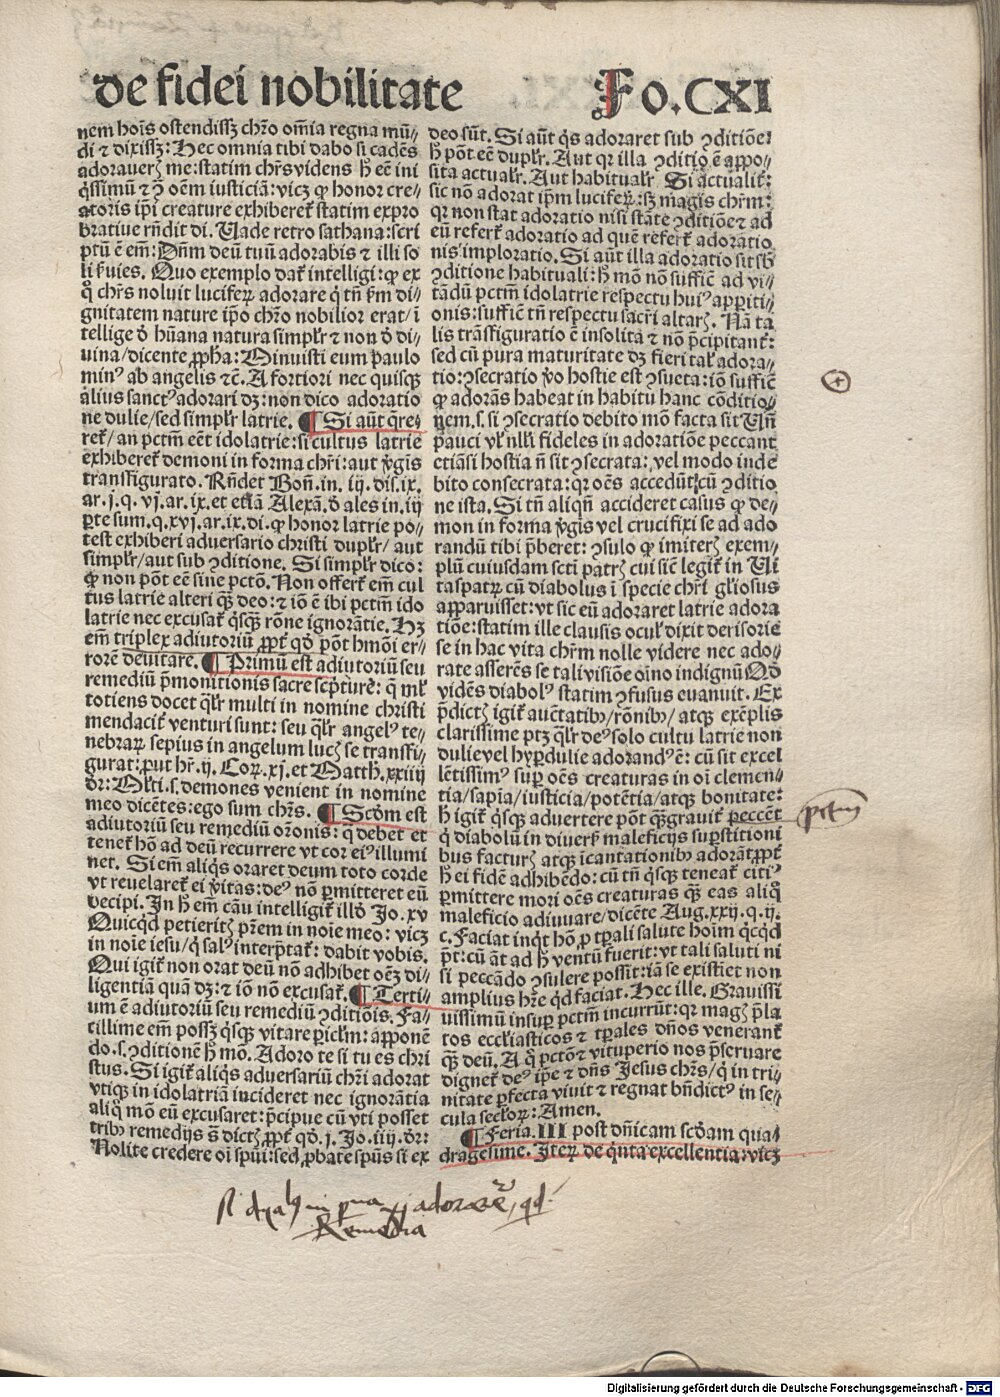 de fidei nobilitate
Fo.CXI
nem hoīs ostendissꝫ chr̄o om̄ia regna mū⸗
di ⁊ dixissꝫ: Hec omnia tibi dabo si cadēs
adorauerꝭ me: statim chr̄s videns ħ eē ini
q̇ssimū ⁊ ꝯ oēm iusticiā: vicꝫ ꝙ honor cre⸗
atoris ip̄i creature exhiberet̄ statim expro
bratiue rn̄dit di. Uade retro sathana: scri
ptū ē em̄: Dn̄m deū tuū adorabis ⁊ illi so
li ẜuies. Quo exemplo dat̄ intelligi: ꝙ ex
q̊ chr̄s noluit luciferꝝ adorare q̇ tn̄ ẜm di⸗
gnitatem nature ip̄o chr̄o nobilior erat/ ī
tellige ď hūana natura simpl̄r ⁊ non ď di⸗
uina/dicente ꝓpha: Minuisti eum paulo
minꝰ ab angelis ⁊c̄. A fortiori nec quisqꝫ
alius sanctꝰ adorari dꝫ: non dico adoratio
ne dulie/sed simpl̄r latrie. ¶ Si aūt q̄re⸗
ret̄/ an pctm̄ eēt idolatrie: si cultus latrie
exhiberet̄ demoni in forma chr̄i: aut v̓gīs
transfigurato. Rn̄det Bon̄. in. iij. dis. ix.
ar. j. q. vj. ar. ix. et etiā Alexā. ď ales in. iij
ꝑte sum. q. xvj. ar. ix. di. ꝙ honor latrie po⸗
test exhiberi aduersario christi dupl̄r/ aut
simpl̄r/aut sub ꝯditione. Si simpl̄r dico:
ꝙ non pōt eē sine pctō. Non offert̄ em̄ cul
tus latrie alteri qꝫ deo: ⁊ iō ē ibi pctm̄ ido
latrie nec excusat̄ q̇sqꝫ rōne ignorātie. Hꝫ
em̄ triplex adiutoriū ꝓpt̄ qd̄ pōt hmōi er⸗
rorē deuitare. ¶ Primū est adiutoriū seu
remediū p̄monitionis sacre scp̄ture: q̄ ml̄t
totiens docet ql̄r multi in nomine christi
mendacit̄ venturi sunt: seu ql̄r angelꝰ te⸗
nebraꝝ sepius in angelum lucꝭ se transfi⸗
gurat: ꝓut hr̄. ij. Coꝝ. xj. et Matth. xxiiij
dr̄: Ml̄ti. s. demones venient in nomine
meo dicētes: ego sum chr̄s. ¶ Scd̄m est
adiutoriū seu remediū or̄onis: q̄ debet et
tenet̄ hō ad deū recurrere vt cor eiꝰ illumi
net. Si em̄ aliq̇s oraret deum toto corde
vt reuelaret̄ ei v̓itas: deꝰ nō ꝑmitteret eū
decipi. In ħ em̄ cāu intelligit̄ illd̄ Jo. xv
Quicq̇d petieritꝭ p̄rem in noīe meo: vicꝫ
in noīe iesu/ q̇ salꝰ interp̄tat̄: dabit vobis.
Qui igit̄ non orat deū nō adhibet oēꝫ di⸗
ligentiā quā dꝫ: ⁊ iō nō excusat̄. ¶ Terti⸗
um ē adiutoriū seu remediū ꝯditiōis. Fa⸗
cillime em̄ possꝫ q̇sqꝫ vitare ꝑiclm̄: apponē
do. s. ꝯditionē ħ mō. Adoro te si tu es chri
stus. Si igit̄ aliq̇s aduersariū chr̄i adorat
vtiqꝫ in idolatriā incideret nec ignorātia
aliq̊ mō eū excusaret: p̄cipue cū vti posset
tribꝰ remedijs s̄ dictꝭ ꝓpt̄ qd̄. j. Jo. iiij. dr̄:
Nolite credere oī spūi: sed ꝓbate spūs si ex
deo sūt. Si aūt q̇s adoraret sub ꝯditiōe:
ħ pōt eē dupl̄r. Aut qr illa ꝯditio ē appo⸗
sita actual̄r. Aut habitual̄r. Si actualit̄:
sic nō adorat ip̄m luciferꝝ: sꝫ magis chr̄m:
qr non stat adoratio nisi stāte ꝯditiōe ⁊ ad
eū refert̄ adoratio ad quē refert̄ adoratio
nis imploratio. Si aūt illa adoratio sit sb̄
ꝯditione habituali: ħ mō nō suffic̄ ad vi⸗
tādū pctm̄ idolatrie respectu huiꝰ appiti⸗
onis: suffic̄ tn̄ respectu sacr̄i altarꝭ. Nā ta
lis trāsfiguratio ē insolita ⁊ nō p̄cipitant̄:
sed cū pura maturitate dꝫ fieri tal̄ adora⸗
tio: ꝯsecratio v̓o hostie est ꝯsueta: iō suffic̄
ꝙ adorās habeat in habitu hanc cōditio⸗
nem. s. si ꝯsecratio debito mō facta sit. Un̄
pauci vl̄ nlli fideles in adoratiōe peccant
etiāsi hostia n̄ sit ꝯsecrata: vel modo inde
bito consecrata: qr oēs accedūt cū ꝯditio
ne ista. Si tn̄ aliqn̄ accideret casus ꝙ de⸗
mon in forma v̓gīs vel crucifixi se ad ado
randū tibi p̄beret: ꝯsulo ꝙ imiterꝭ exem⸗
plū cuiusdam scti patrꝭ cui siē legit̄ in Ui
taspatꝝ cū diabolus ī specie chr̄i gl̄iosus
apparuisset: vt sic eū adoraret latrie adora
tiōe: statim ille clausis ocul̄ dixit derisorie
se in hac vita chr̄m nolle videre nec ado⸗
rare asserēs se tali visiōe oīno indignū Qd̄
vidēs diabolꝰ statim ꝯfusus euanuit. Ex
p̄dictꝭ igit̄ auctatibꝫ/ rōnibꝫ/ atqꝫ exēplis
clarissime ptꝫ ql̄r deꝰ solo cultu latrie non
dulie vel hyꝑdulie adorandꝰ ē: cū sit excel
lētissimꝰ suꝑ oēs creaturas in oī clemen⸗
tia/sapīa/iusticia/potētia/atqꝫ bonitate:
ħ igit̄ q̇sqꝫ aduertere pōt qꝫ grauit̄ peccēt
q̇ diabolū in diuers̄ maleficijs suꝑstitioni
bus facturꝭ atqꝫ īcantationibꝫ adorāt ꝓpt̄
ħ ei fidē adhibēdo: cū tn̄ q̇sqꝫ teneat̄ citiꝰ
ꝑmittere mori oēs creaturas qꝫ eas aliq̊
maleficio adiuuare/ dicēte Aug. xxij. q. ij.
c. Faciat inq̇t hō ꝓ tꝑali salute hoīm q̇cq̇d
p̄t: cū āt ad ħ ventū fuerit: vt tali saluti ni
si peccādo ꝯsulere possit: iā se existiēt non
amplius hr̄e qd faciat. Hec ille. Grauissi
uissimū insuꝑ pctm̄ incurrūt: qr magꝭ p̄la
tos eccl̄iasticos ⁊ tꝑales dn̄os venerant̄
qꝫ deū. A q̊ pctō ⁊ vituperio nos p̄seruare
dignet̄ deꝰ ip̄e ⁊ dn̄s Jesus chr̄s/ q̇ in tri⸗
nitate ꝑfecta viuit ⁊ regnat bn̄dictꝰ in se⸗
cula secl̄oꝝ: Amen.
¶ Feria. III post dn̄icam scd̄am qua⸗
dragesime. Iteꝝ de q̇nta excellentia: vicꝫ
pctm̄
Remedia
Digitalisierung gefördert durch die Deutsche Forschungsgemeinschaft - DFG